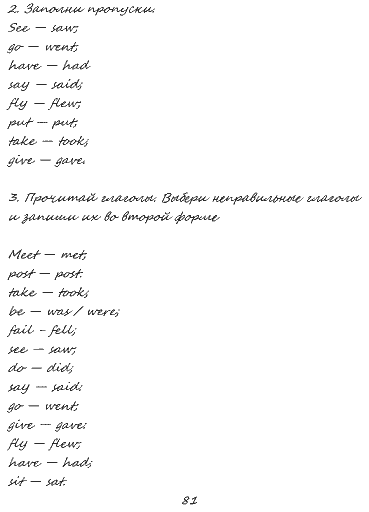 2. Заполни пропуски.
See — saw;
go — went;
have — had
say — said;
fly — flew;
put — put;
take — took;
give — gave.
3. Прочитай глаголы. Выбери неправильные глаголы
и запиши их во второй форме
Meet — met;
post — post.
take — took;
be — was / were;
fall - fell;
see — saw;
do — did;
say — said;
go — went;
give — gave;
fly — flew;
have — had;
sit — sat.
81